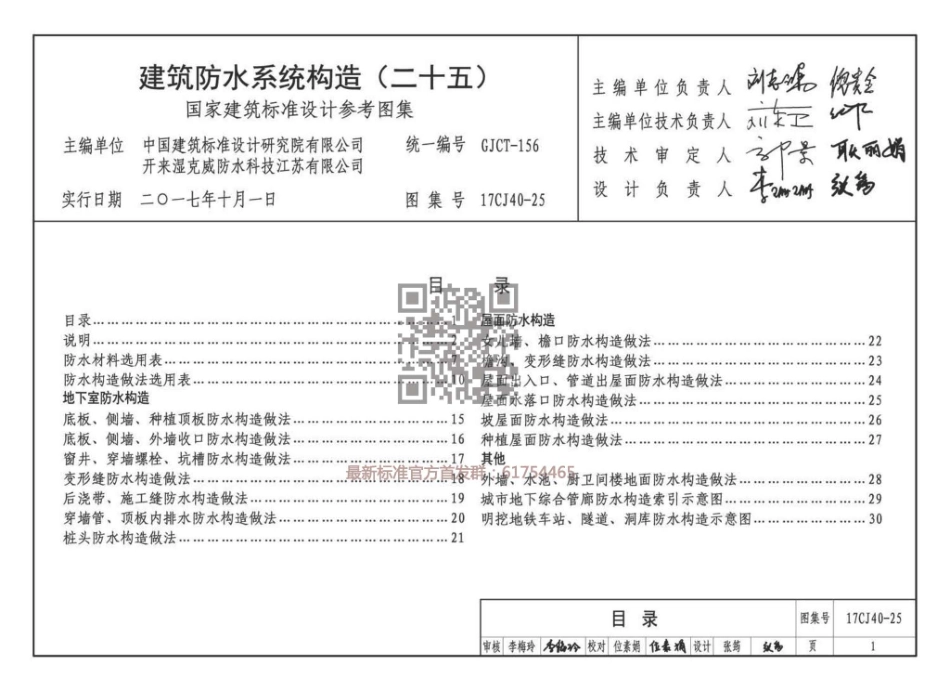 建筑防水系统构造（二十五）
国家建筑标准设计参考图集
主编单位 中国建筑标准设计研究院有限公司 统一编号 GJCT-156
开来湿克威防水科技江苏有限公司
实行日期 二〇一七年十月一日 图集号 17CJ40-25
主编单位负责人
主编单位技术负责人
技术审定人 耿丽娟
设计负责人
目 录
目录……1
说明……2
防水材料选用表……7
防水构造做法选用表……10
地下室防水构造
底板、侧墙、种植顶板防水构造做法……15
底板、侧墙、外墙收口防水构造做法……16
窗井、穿墙螺栓、坑槽防水构造做法……17
变形缝防水构造做法……18
后浇带、施工缝防水构造做法……19
穿墙管、顶板内排水防水构造做法……20
桩头防水构造做法……21
屋面防水构造
女儿墙、檐口防水构造做法……22
檐沟、变形缝防水构造做法……23
屋面出入口、管道出屋面防水构造做法……24
屋面水落口防水构造做法……25
坡屋面防水构造做法……26
种植屋面防水构造做法……27
其他
外墙、水池、厨卫间楼地面防水构造做法……28
城市地下综合管廊防水构造索引示意图……29
明挖地铁车站、隧道、洞库防水构造示意图……30
最新标准官方首发群：61754465
目 录 图集号 17CJ40-25
审核 李梅玲 李梅玲 校对 位素娟 位素娟 设计 张筠 页 1